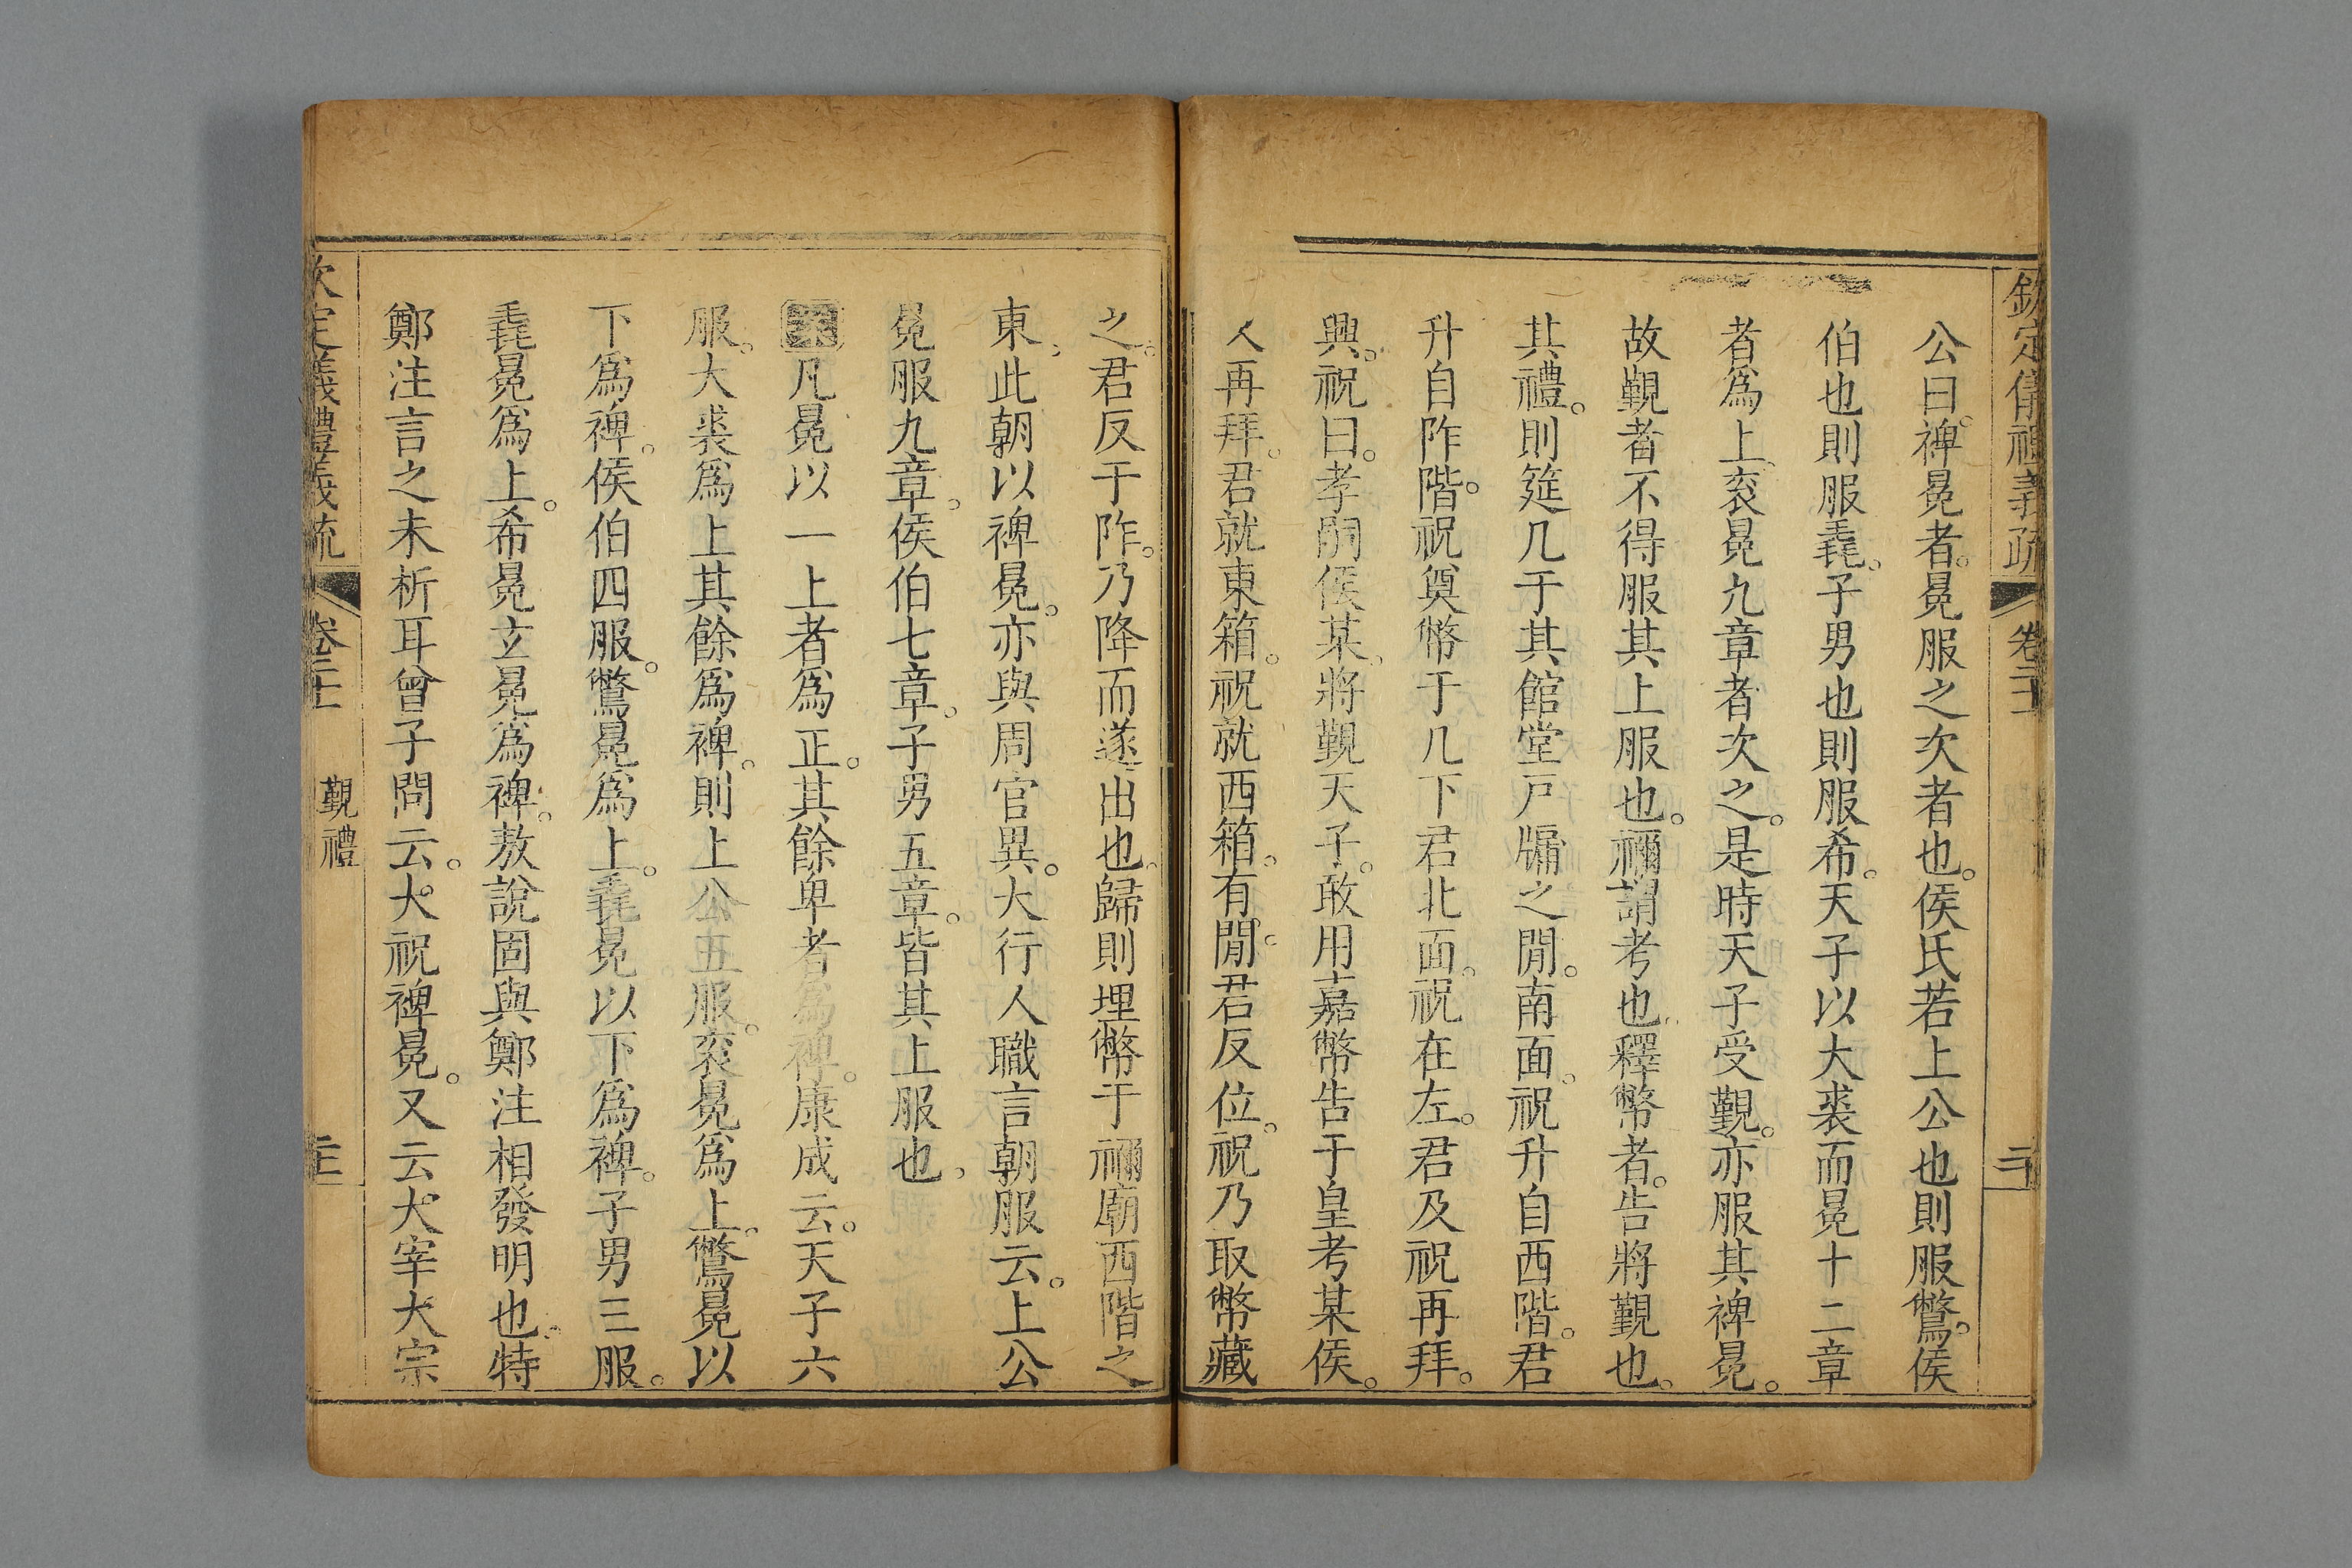 欽定儀禮義疏 卷二十 二十
公曰。裨冕者。冕服之次者也。侯氏若上公也則服鷩。侯
伯也則服毳。子男也則服希。天子以大裘而冕十二章
者爲上。衮冕九章者次之。是時天子受覲。亦服其裨冕。
故覲者不得服其上服也。禰謂考也。釋幣者。告將覲也。
其禮。則筵几于其館堂戸牖之閒。南面。祝升自西階。君
升自阼階。祝奠幣于几下君北面。祝在左。君及祝再拜。
興。祝曰。孝嗣侯某。將覲天子。敢用嘉幣告于皇考某侯。
又再拜。君就東箱。祝就西箱。有閒。君反位。祝乃取幣藏
之。君反于阼。乃降而遂出也。歸則埋幣于禰廟西階之
東。此朝以裨冕。亦與周官異。大行人職言朝服云。上公
冕服九章。侯伯七章。子男五章。皆其上服也。
凡冕以一上者爲正。其餘卑者爲裨。康成云。天子六
服。大裘爲上其餘爲裨。則上公五服。衮冕爲上。鷩冕以
下爲裨。侯伯四服。鷩冕爲上。毳冕以下爲裨。子男三服。
毳冕爲上。希冕玄冕爲裨。敖說固與鄭注相發明也。特
鄭注言之未析耳曾子問云。大祝裨冕。又云大宰大宗
欽定儀禮義疏 卷二十 覲禮